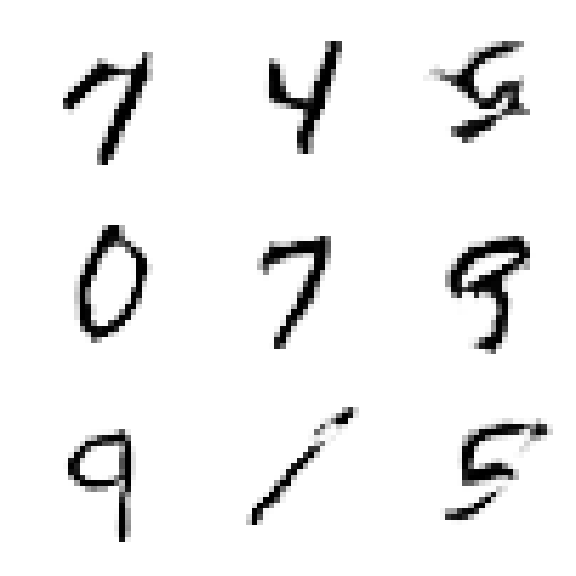 7 4 5
0 7 9
9 1 5